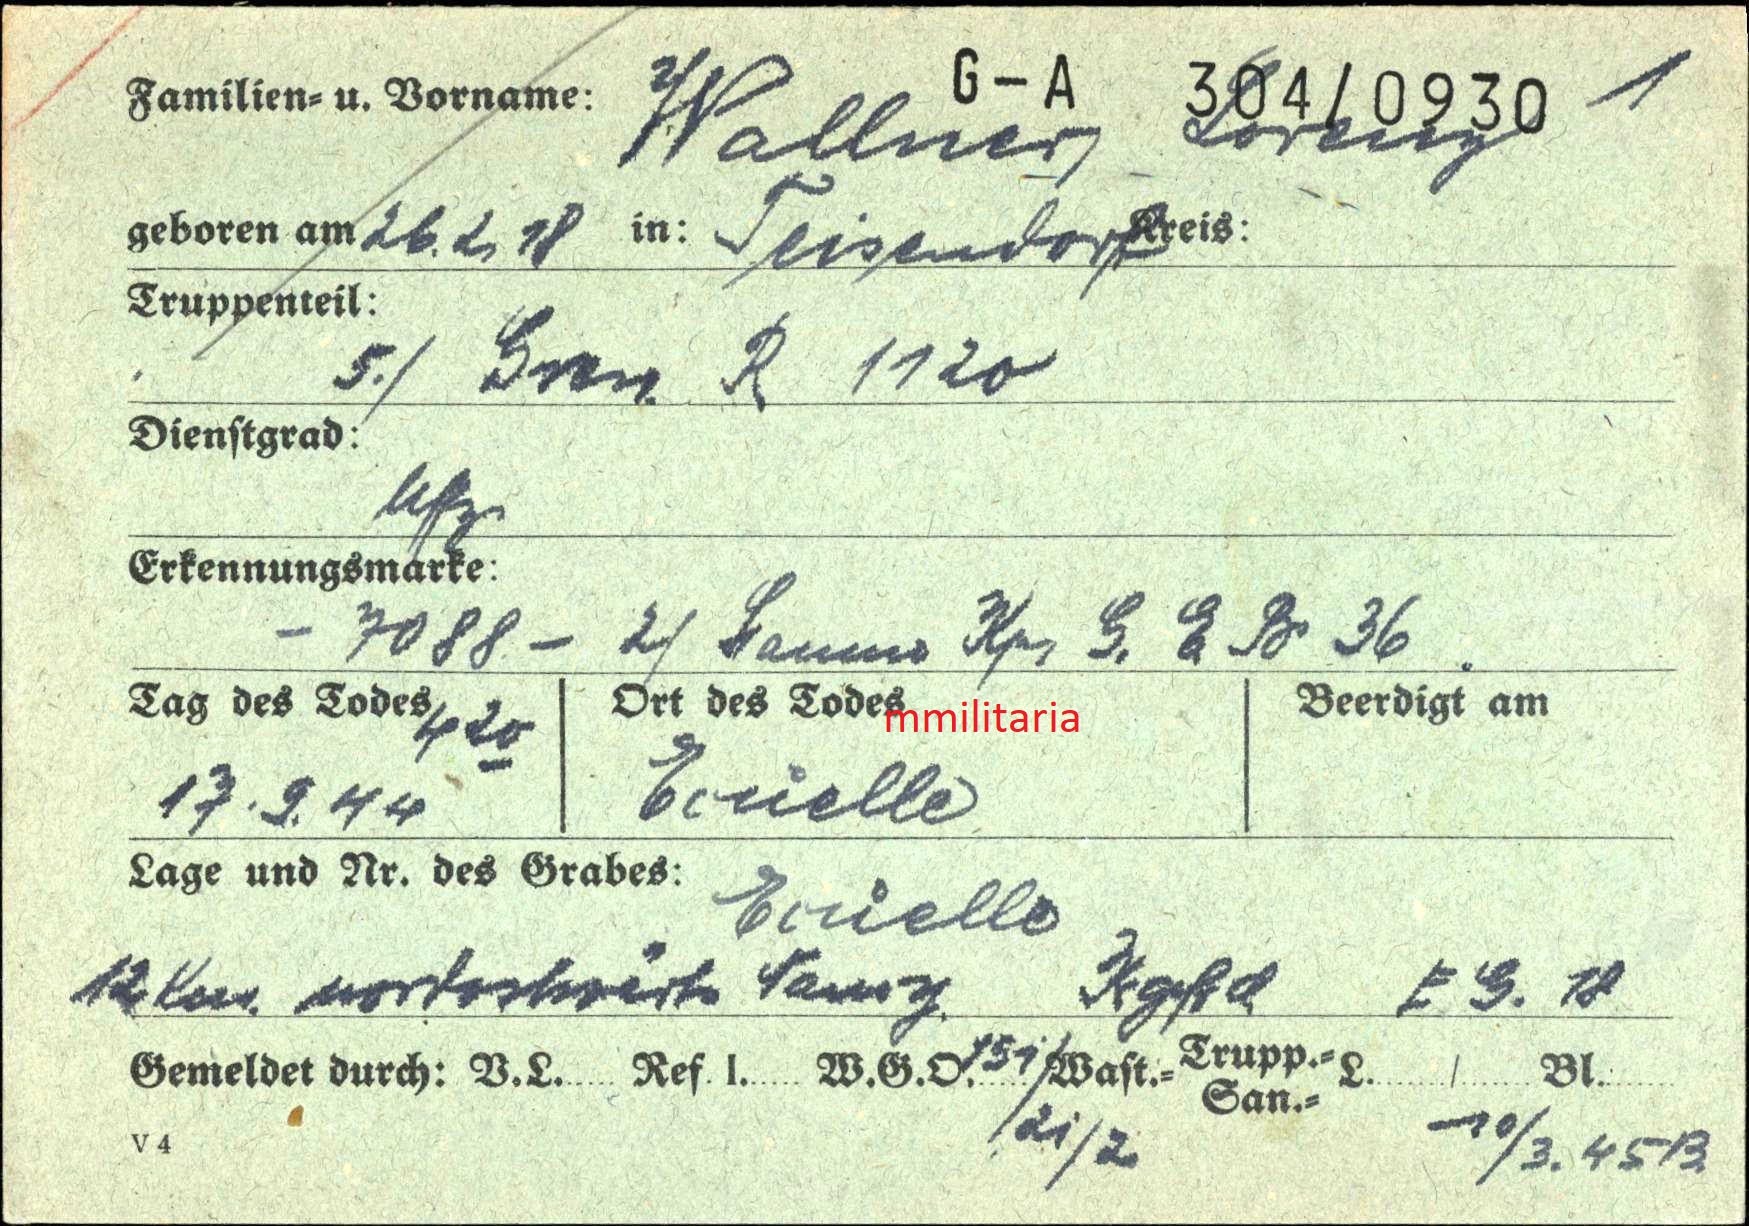 G-A 304/0930 1
Familien- u. Vorname: Wallner, Lorenz
geboren am 26.2.18 in: Teisendorf Kreis:
Truppenteil:
5./ Gren. R 1120
Dienstgrad:
Uffz
Erkennungsmarke:
- 7088 - 2/ Kp. G. E B 36
Tag des Todes Ort des Todes Beerdigt am
mmilitaria
4 20
17.9.44
Lage und Nr. des Grabes:
12 km. nordostwärts Nancy E G. 18
Gemeldet durch: V.L. Ref. I. W.G.O. 151/ Wast.- Trupp.- San.- L. / Bl.
21/2 10/3.45 B
V 4